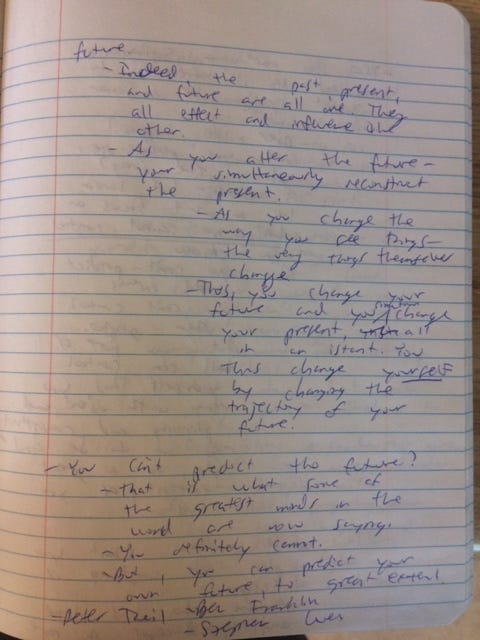 future
- Indeed, the past, present,
and future are all one. They
all effect and influence the
other.
- As you alter the future -
your simultaneously reconstruct
the present.
- As you change the
way you see things -
the very things themselves
change
- Thus, you change your
future and you change
your present, all
in an istant. You
Thus change yourself
by changing the
trajectory of your
future.
- You can't predict the future?
- That is what some of
the greatest minds in the
word are now saying.
- You definitely cannot.
- But, you can predict your
own future, to great extent
- Peter Theil - Ben Franklin
- Stephen